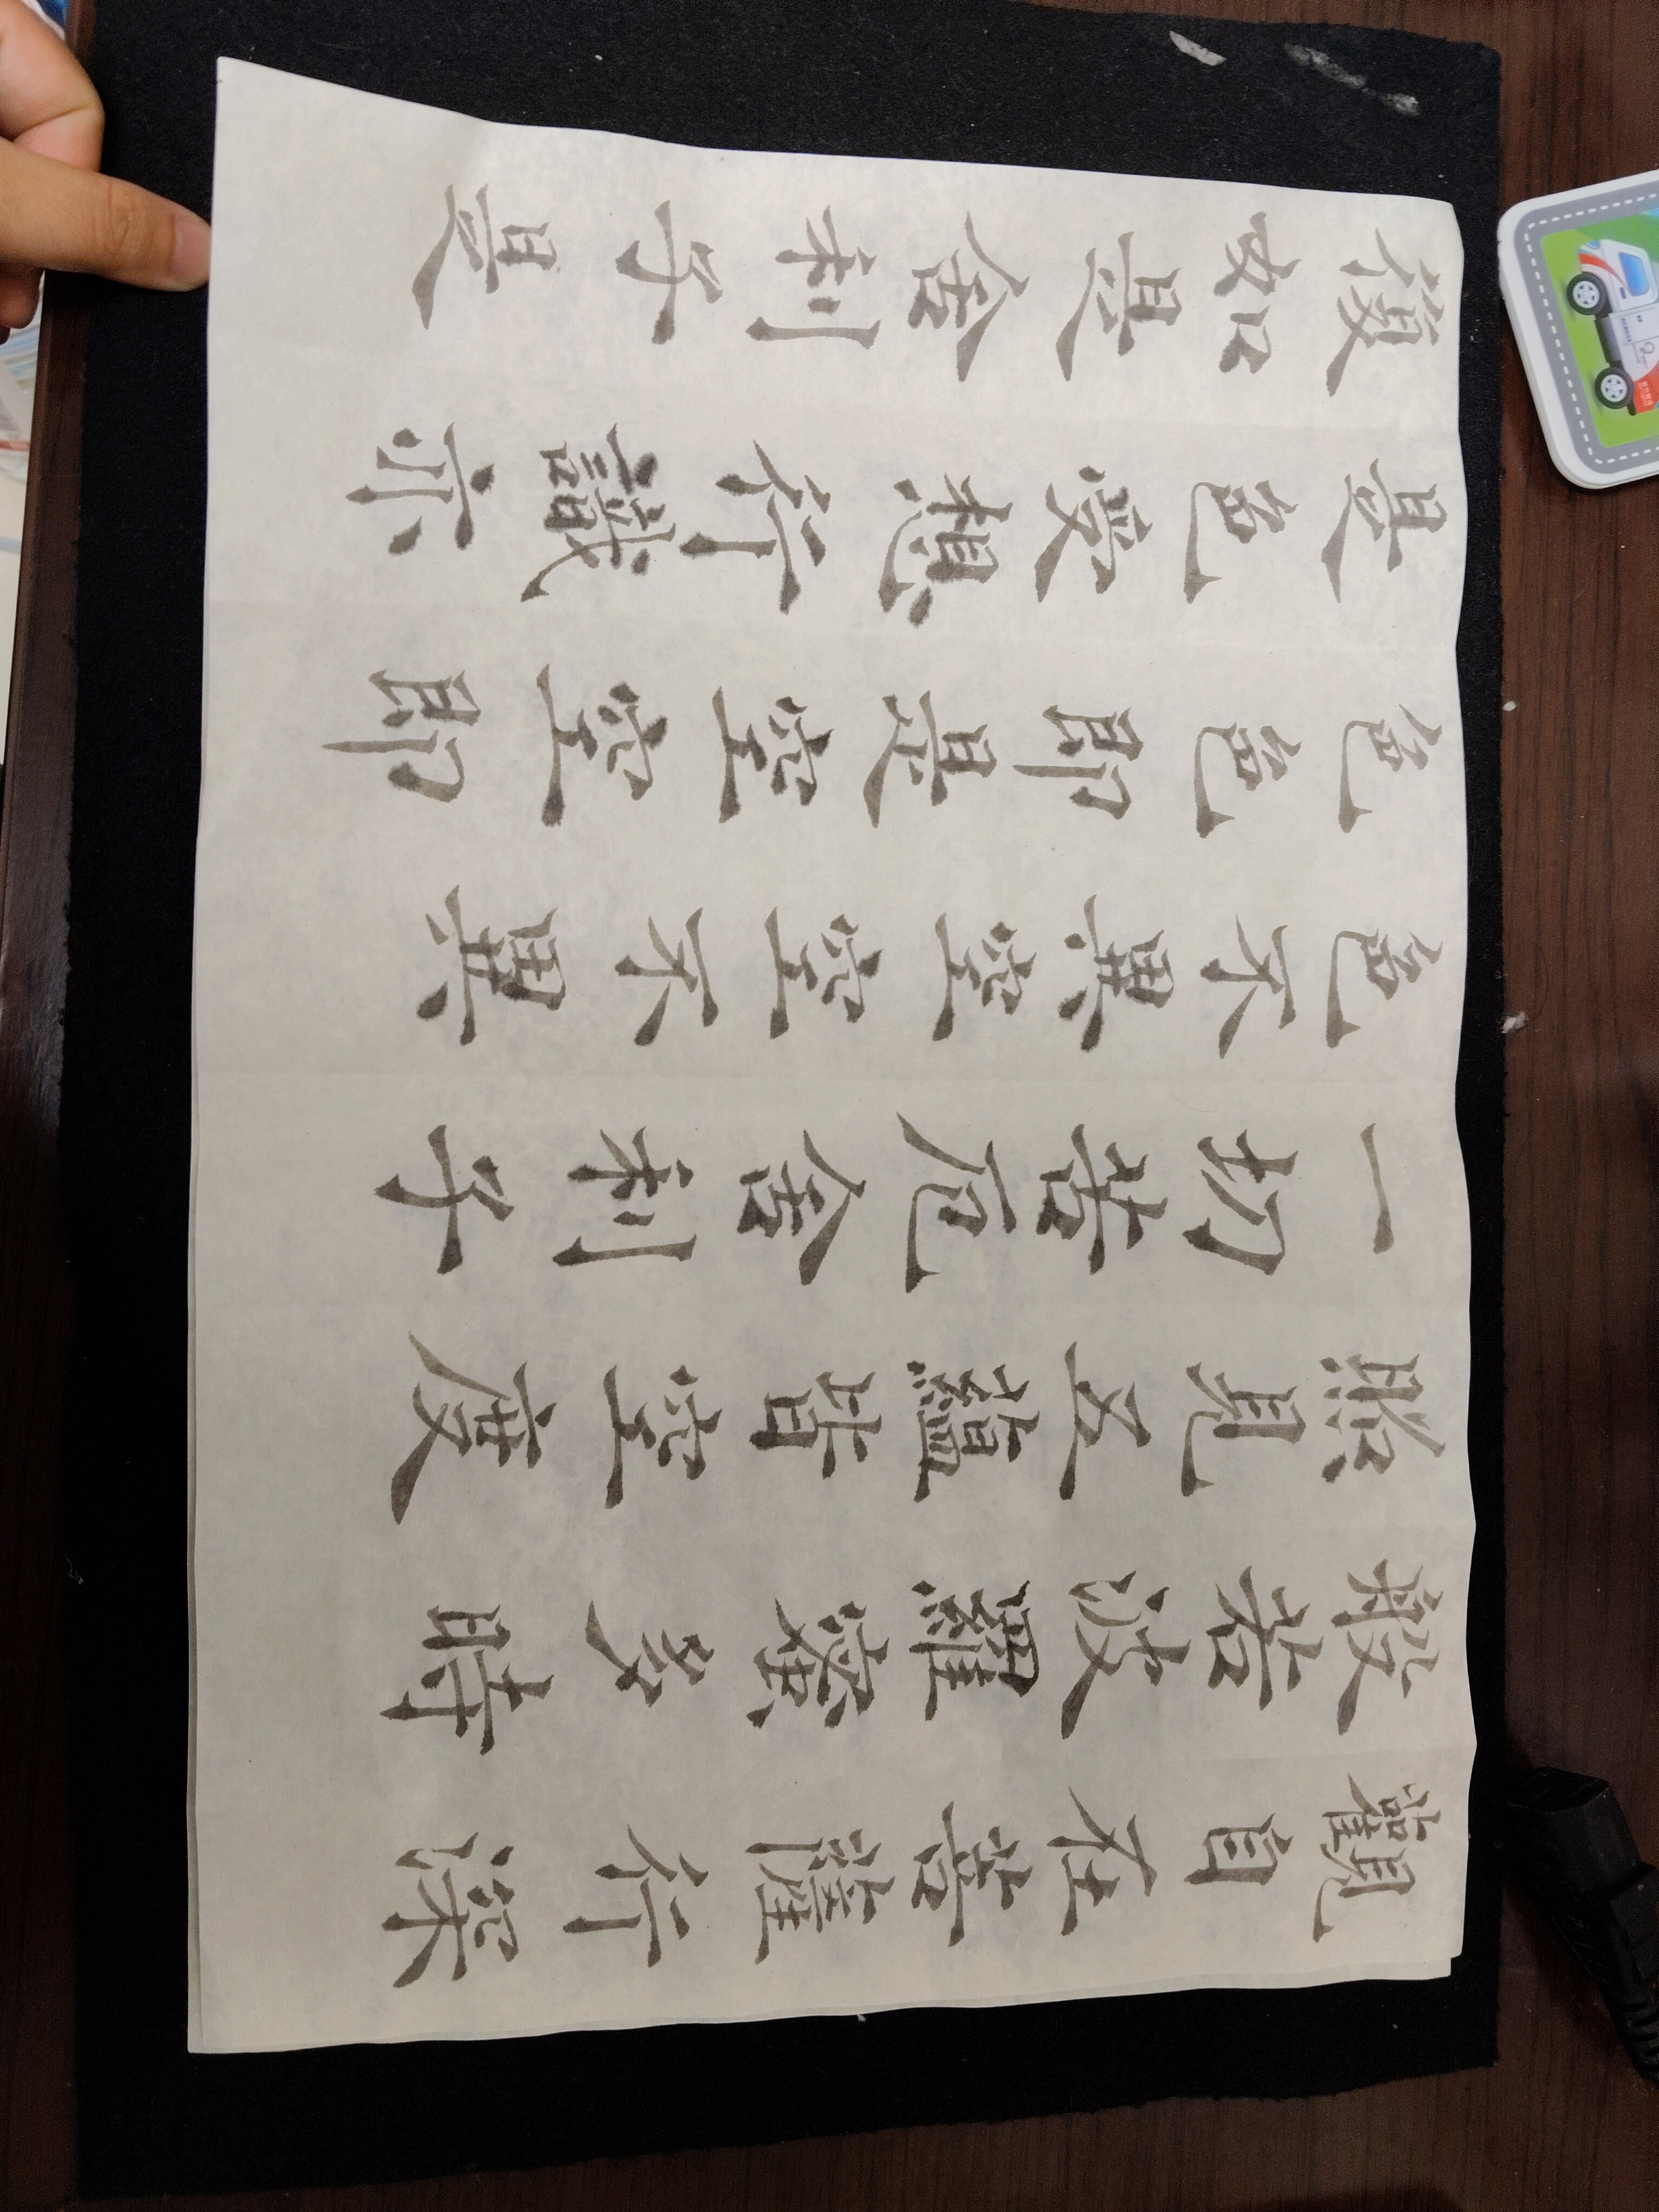 觀自在菩薩行深
般若波羅蜜多時
照見五蘊皆空度
一切苦厄舍利子
色不異空空不異
色色即是空空即
是色受想行識亦
復如是舍利子是